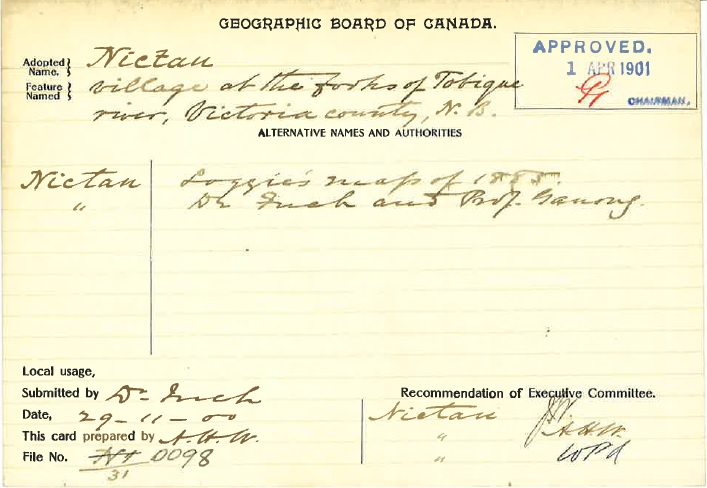 GEOGRAPHIC BOARD OF CANADA.
Adopted Name. } Nictau
Feature Named } village at the forks of Tobique
river, Victoria county, N. B.
APPROVED.
1 APR 1901
CHAIRMAN.
ALTERNATIVE NAMES AND AUTHORITIES
Nictau Loggie's map of 1885
" Dr Inch and Prof. Ganong.
Local usage,
Submitted by Dr Inch
Date, 29-11-00
This card prepared by A.H.W.
File No. 0098
31
Recommendation of Executive Committee.
Nictau
" A.H.W.
" WPA